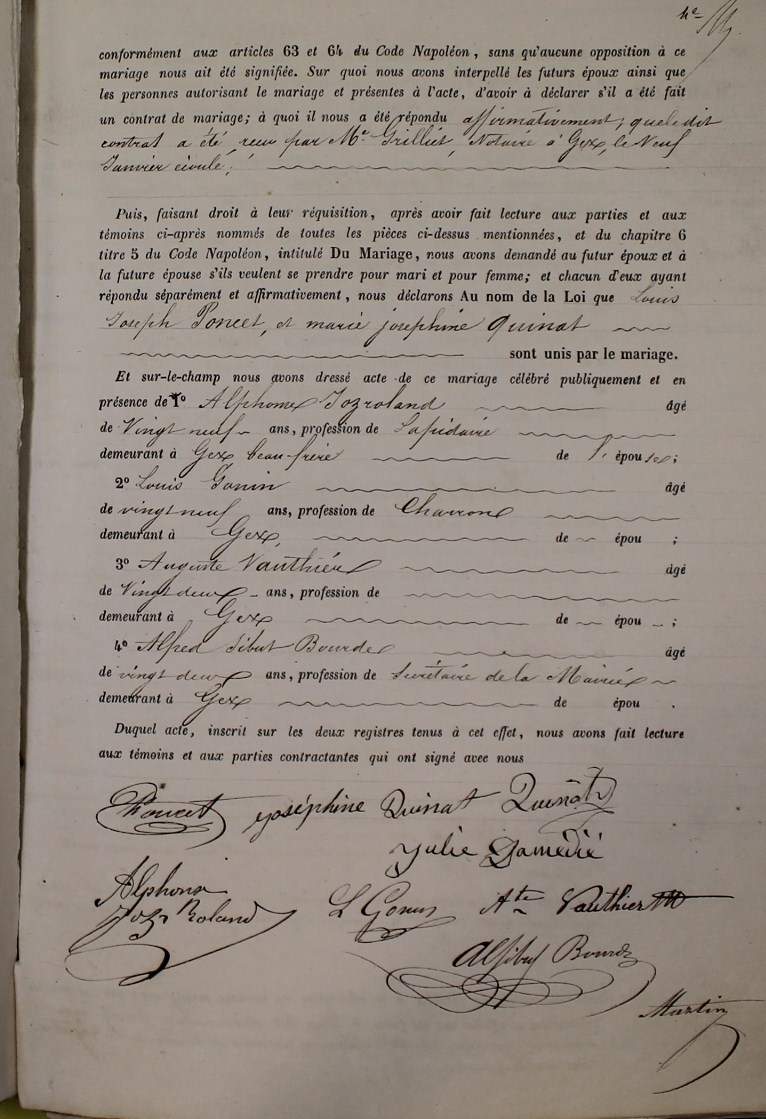 conformément aux articles 63 et 64 du Code Napoléon, sans qu'aucune opposition à ce
mariage nous ait été signifiée. Sur quoi nous avons interpellé les futurs époux ainsi que
les personnes autorisant le mariage et présentes à l'acte, d'avoir à déclarer s'il a été fait
un contrat de mariage; à quoi il nous a été répondu affirmativement; que le dit
contrat a été reçu par Me Grilliet, Notaire à Gex, le Neuf
Janvier écoulé,
Puis, faisant droit à leur réquisition, après avoir fait lecture aux parties et aux
témoins ci-après nommés de toutes les pièces ci-dessus mentionnées, et du chapitre 6
titre 5 du Code Napoléon, intitulé Du Mariage, nous avons demandé au futur époux et à
la future épouse s'ils veulent se prendre pour mari et pour femme; et chacun d'eux ayant
répondu séparément et affirmativement, nous déclarons Au nom de la Loi que Louis
Joseph Poncet, et marie josephine Quinat
sont unis par le mariage.
Et sur-le-champ nous avons dressé acte de ce mariage célébré publiquement et en
présence de 1º Alphonse Jozroland âgé
de Vingt neuf ans, profession de Lapidaire
demeurant à Gex beau frère de l' épouse;
2º Louis Gonin âgé
de vingt neuf ans, profession de Charron
demeurant à Gex, de épou ;
3º Auguste Vauthier âgé
de Vingt deux ans, profession de
demeurant à Gex de épou ;
4º Alfred Sibut Bourde âgé
de vingt deux ans, profession de Secrétaire de la Mairie
demeurant à Gex de épou .
Duquel acte, inscrit sur les deux registres tenus à cet effet, nous avons fait lecture
aux témoins et aux parties contractantes qui ont signé avec nous
Poncet joséphine Quinat Quinat
Julie Damédié
Alphonse
Joz Roland L Gonin Ate Vauthier
A Sibut Bourde
Martin